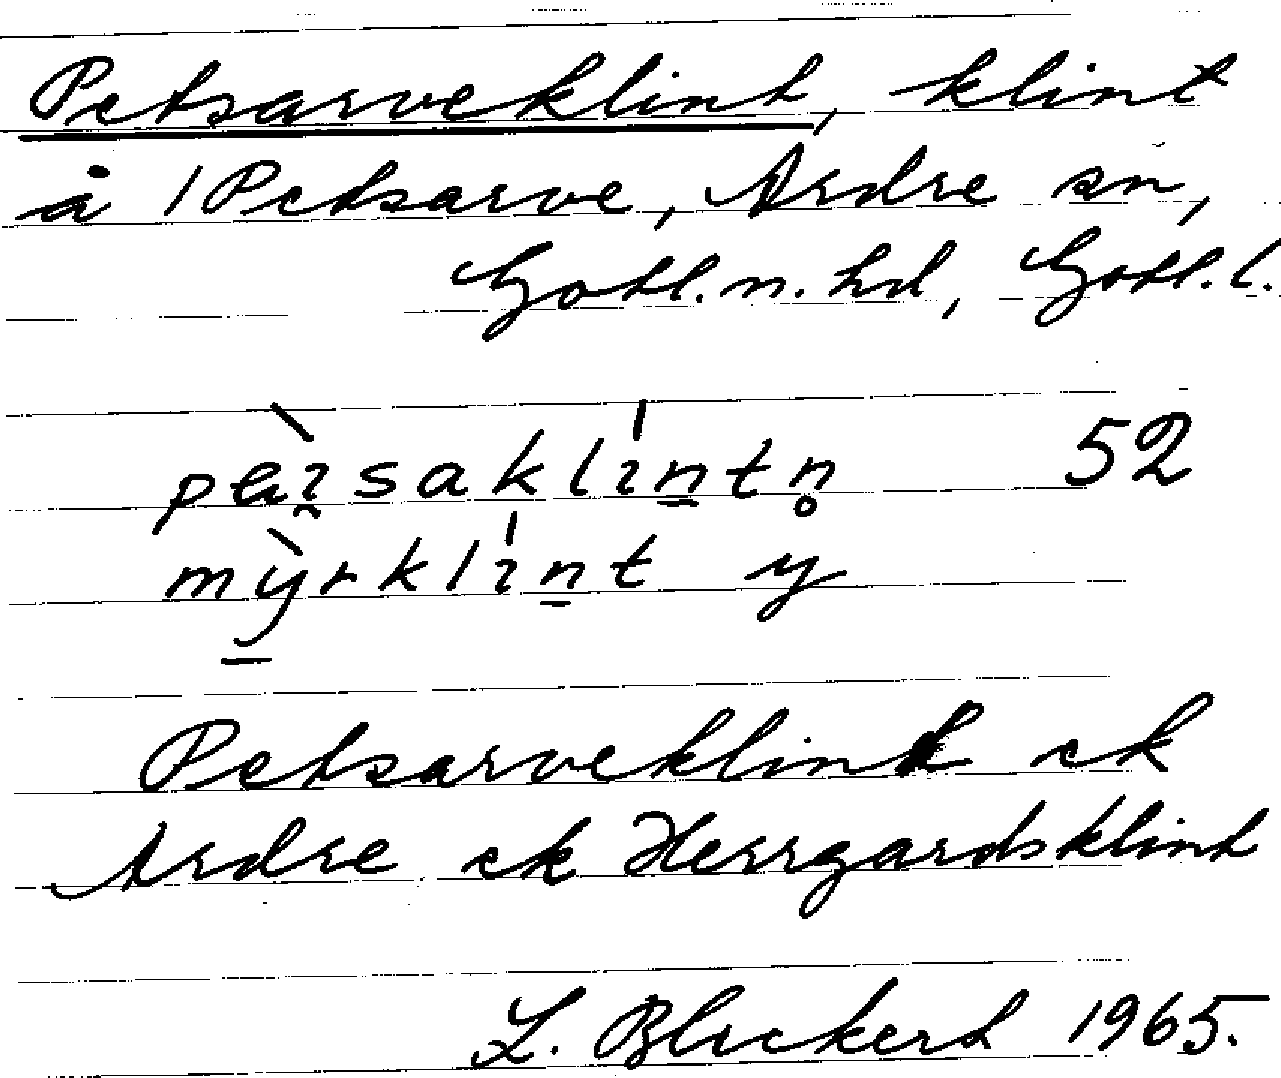 Petsarveklint, klint
å 1 Petsarve, Ardre sn,
Gotl. n. hd, Gotl. l.
52
mỳrklínt y
Petsarveklint ek
Ardre ek Herrgardsklint
L. Blickert 1965.